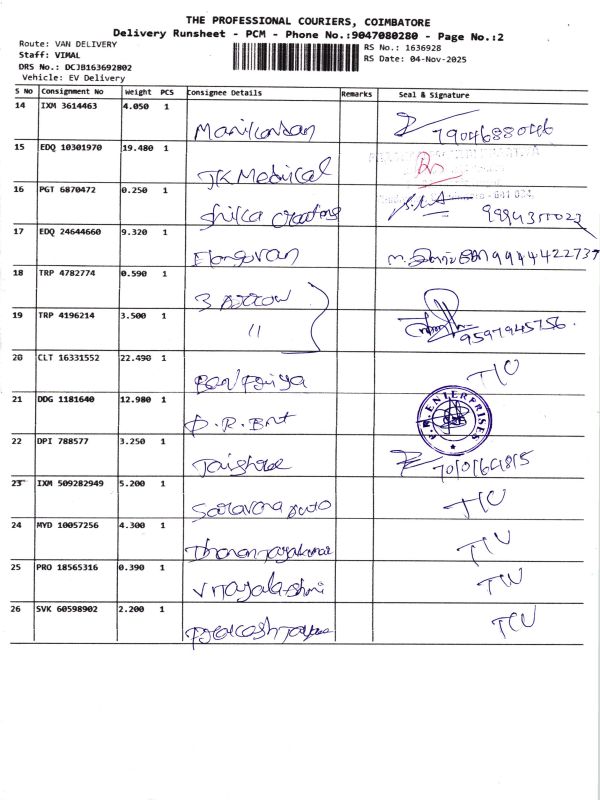 THE PROFESSIONAL COURIERS, COIMBATORE
Delivery Runsheet - PCM - Phone No.:9047080280 - Page No.:2
Route: VAN DELIVERY
Staff: VIMAL
DRS No.: DCJB163692802
Vehicle: EV Delivery
RS No.: 1636928
RS Date: 04-Nov-2025
S No Consignment No Weight PCS Consignee Details Remarks Seal & Signature
14 IXM 3614463 4.050 1
Manikandan 7904688046
15 EDQ 10301970 19.480 1
JK Medical
16 PGT 6870472 0.250 1
Shilka Creations
17 EDQ 24644660 9.320 1
Elangovan 9944422737
18 TRP 4782774 0.590 1
3 Arrow
19 TRP 4196214 3.500 1
" 9597945756.
20 CLT 16331552 22.490 1
T/U
21 DDG 1181640 12.980 1
P.R. Ent ENTERPRISES
22 DPI 788577 3.250 1
Jaishree
23 IXM 509282949 5.200 1
Saravana Auto T/U
24 MYD 10057256 4.300 1
Dhananjayakumar T/U
25 PRO 18565316 0.390 1
Vijayalakshmi T/U
26 SVK 60598902 2.200 1
T/U